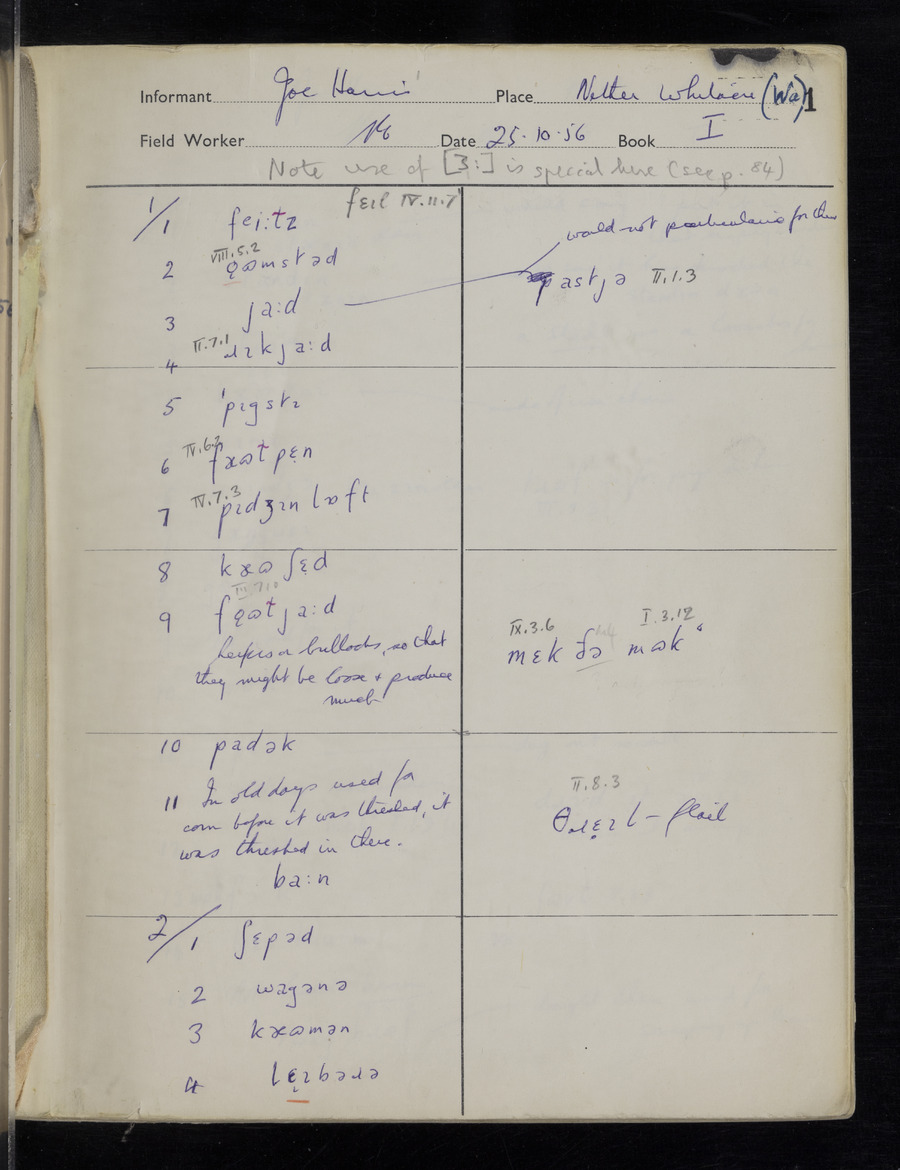 Informant Joe Harris Place Nether Whitacre (Wa) 1
Field Worker Date 25.10.56 Book I
Note use of [ɜ:] is special here (see p. 84)
1/1 feiːtz fɛɪl IV.11.7
would not particularise for this
VIII.5.2
2 ɞɷmstəd
pastjə II.1.3
3 jaːd
II.7.1
4 ɹɪkjaːd
5 'pɪgstɪ
IV.6.2
6 fɤɷtpɛn
IV.7.3
7 pɪdʒɪn lɒft
8 kɤɷ ʃɛd
III.7.10
9 fɞɷtjaːd
heifers or bullocks, so that
they might be loose & produce
much
IX.3.6 I.3.12
mɛk ðə mɷk
10 padək
II.8.3
11 In old days used for
corn before it was threshed, it
was threshed in there.
θɹɛɪl – flail
baːn
2/1 ʃɛpəd
2 wagənə
3 kɤɷmən
4 lɛɪbəɹə